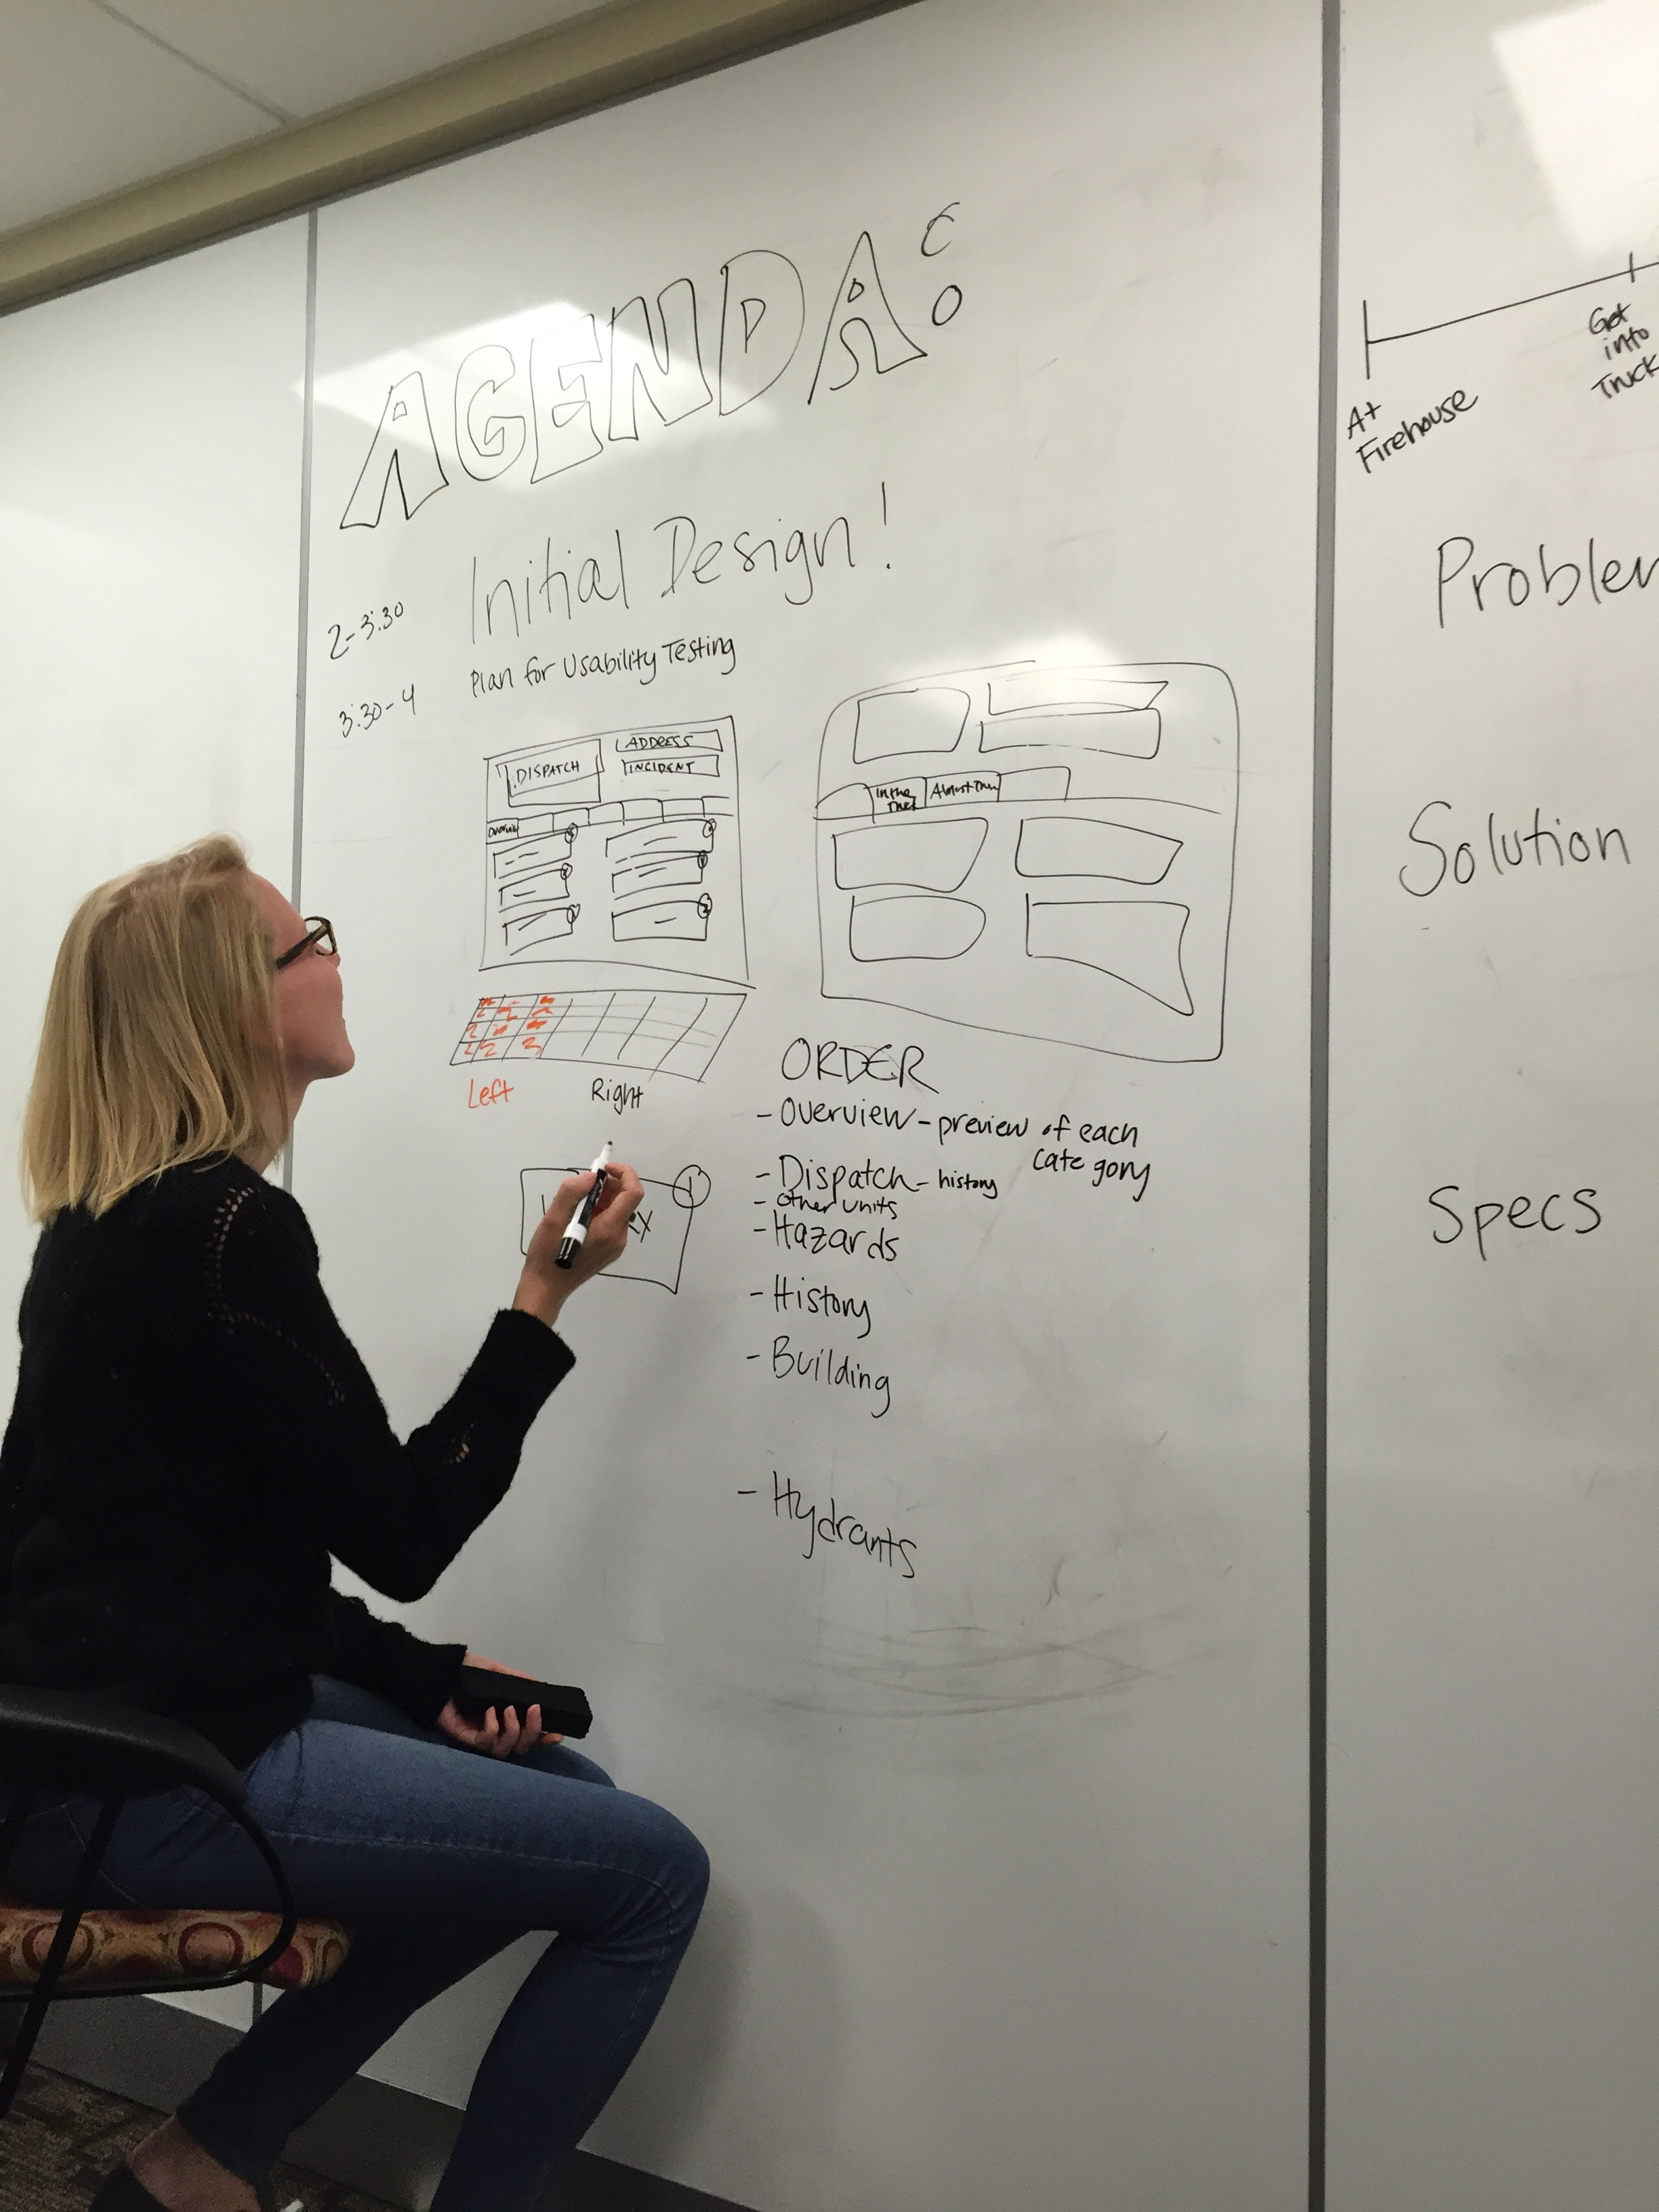 AGENDA:
Initial Design!
2-3:30
Plan for Usability Testing
3:30-4
DISPATCH
ADDRESS
INCIDENT
Overview
In the
Almost There
Left
Right
ORDER
- Overview - preview of each
category
- Dispatch - history
- other units
- Hazards
- History
- Building
- Hydrants
At
Firehouse
Get
into
Truck
Problem
Solution
Specs